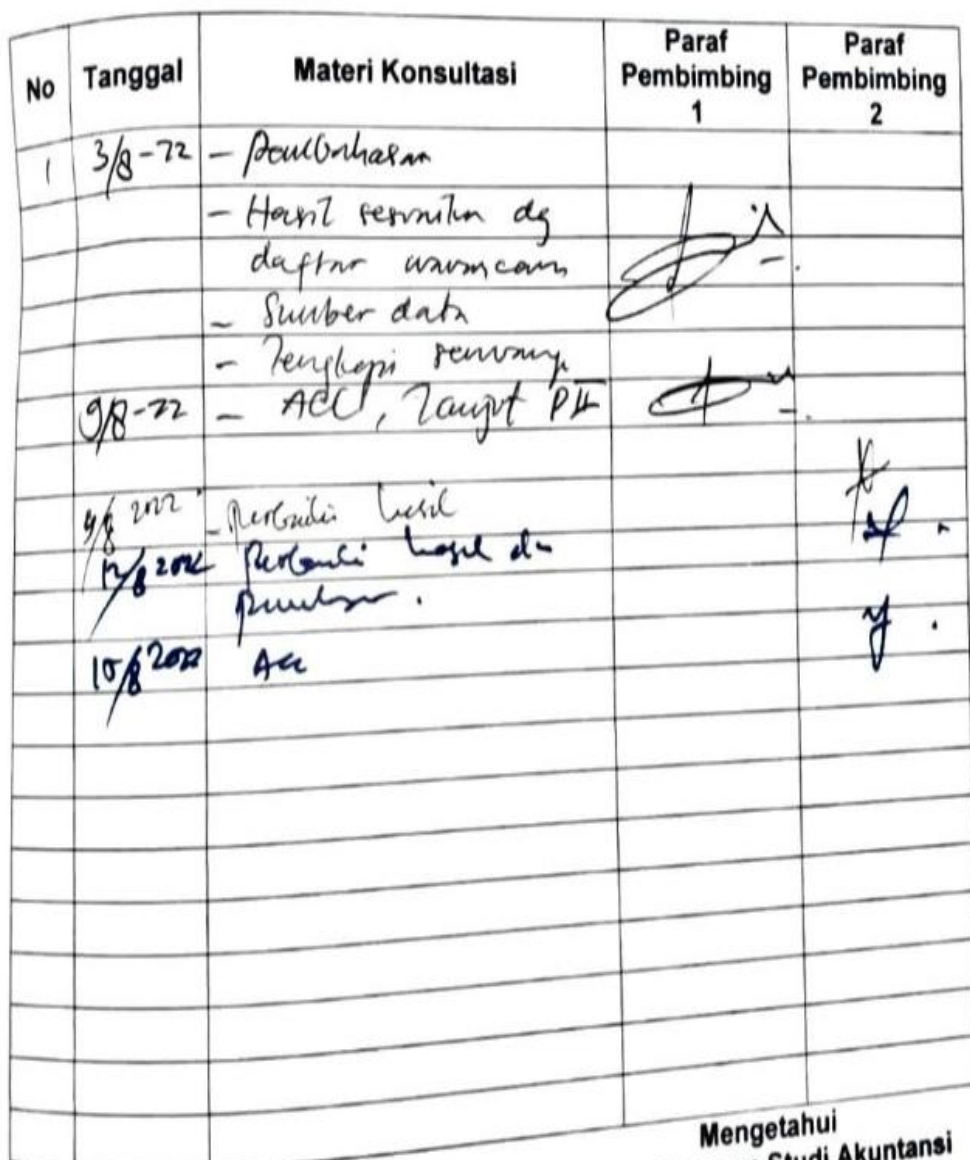 No Tanggal Materi Konsultasi Paraf Pembimbing 1 Paraf Pembimbing 2
1 3/8-22 - Pembahasan
- Hasil sesuaikan dg
daftar wawancara
- Sumber data
- Lengkapi semuanya
9/8-22 - ACC, Lanjut PII
9/8 2022 - Perbaiki hasil
12/8 2022 Perbaiki hasil dan
15/8 2022 Acc
Mengetahui
Studi Akuntansi